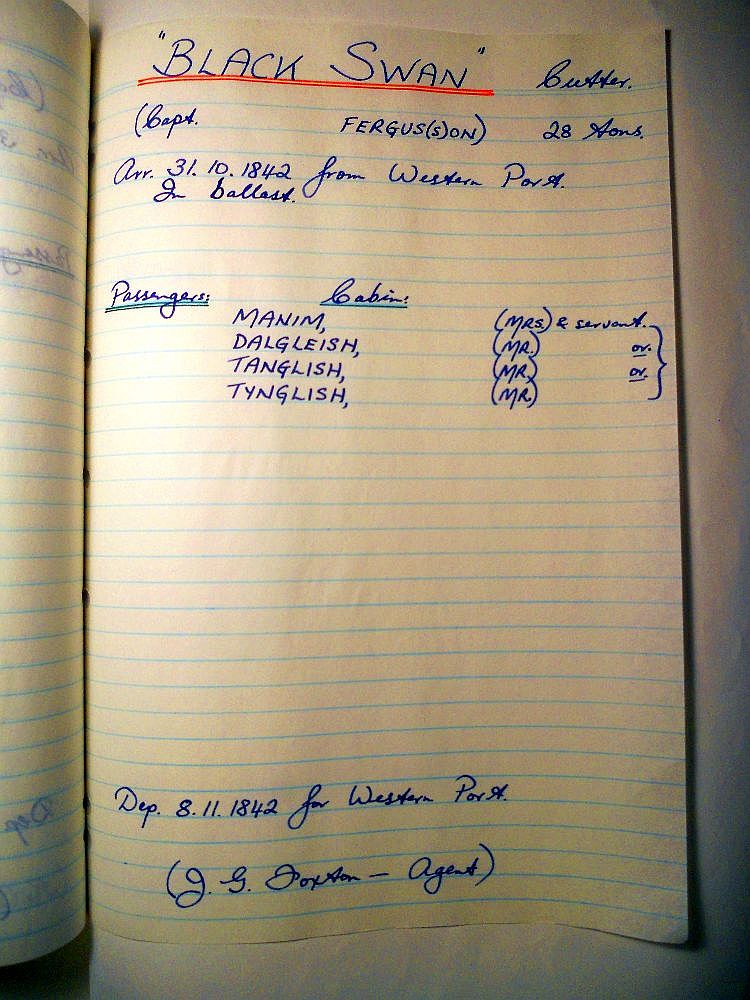 "BLACK SWAN" Cutter.
(Capt. FERGUS(S)ON) 28 tons.
Arr. 31.10.1842 from Western Port.
In ballast.
Passengers: Cabin:
MANIM, (MRS.) & servant.
DALGLEISH, (MR.) or.
TANGLISH, (MR.) or.
TYNGLISH, (MR.)
Dep. 8.11.1842 for Western Port.
(J. G. Foxton - Agent)